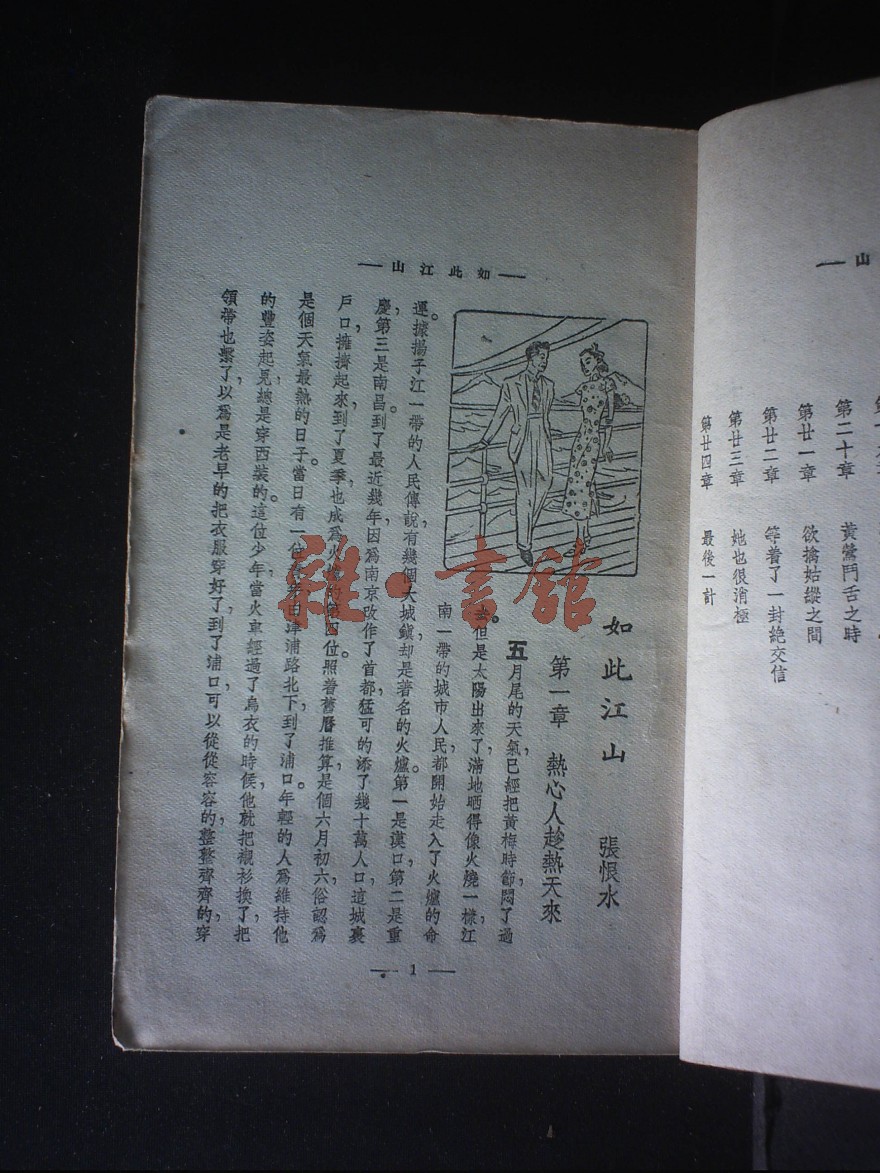 山
第二十章 黃鶯鬥舌之時
第廿一章 欲擒姑縱之間
第廿二章 等着了一封絶交信
第廿三章 她也很消極
第廿四章 最後一計
如此江山
如此江山 張恨水
第一章 熱心人趁熱天來
五月尾的天氣已經把黃梅時節悶了過
去。但是太陽出來了滿地晒得像火燒一樣江
南一帶的城市人民都開始走入了火爐的命
運。據揚子江一帶的人民傳說有幾個大城鎮却是著名的火爐。第一是漢口第二是重
慶第三是南昌到了最近幾年因爲南京改作了首都猛可的添了幾十萬人口這城裏
戶口擁擠起來到了夏季也成爲火爐的第四位照着舊曆推算是個六月初六俗認爲
是個天氣最熱的日子當日有一位少年由津浦路北下到了浦口年輕的人爲維持他
的豐姿起見總是穿西裝的。這位少年當火車經過了烏衣的時候他就把襯衫換了把
領帶也繫了以爲是老早的把衣服穿好了到了浦口可以從從容容的整整齊齊的穿
1
雜·書舘